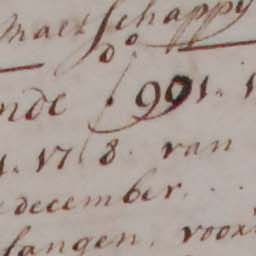 maetschappy
do
nde (991. 1
1. 1718. van
december.
langen, voor